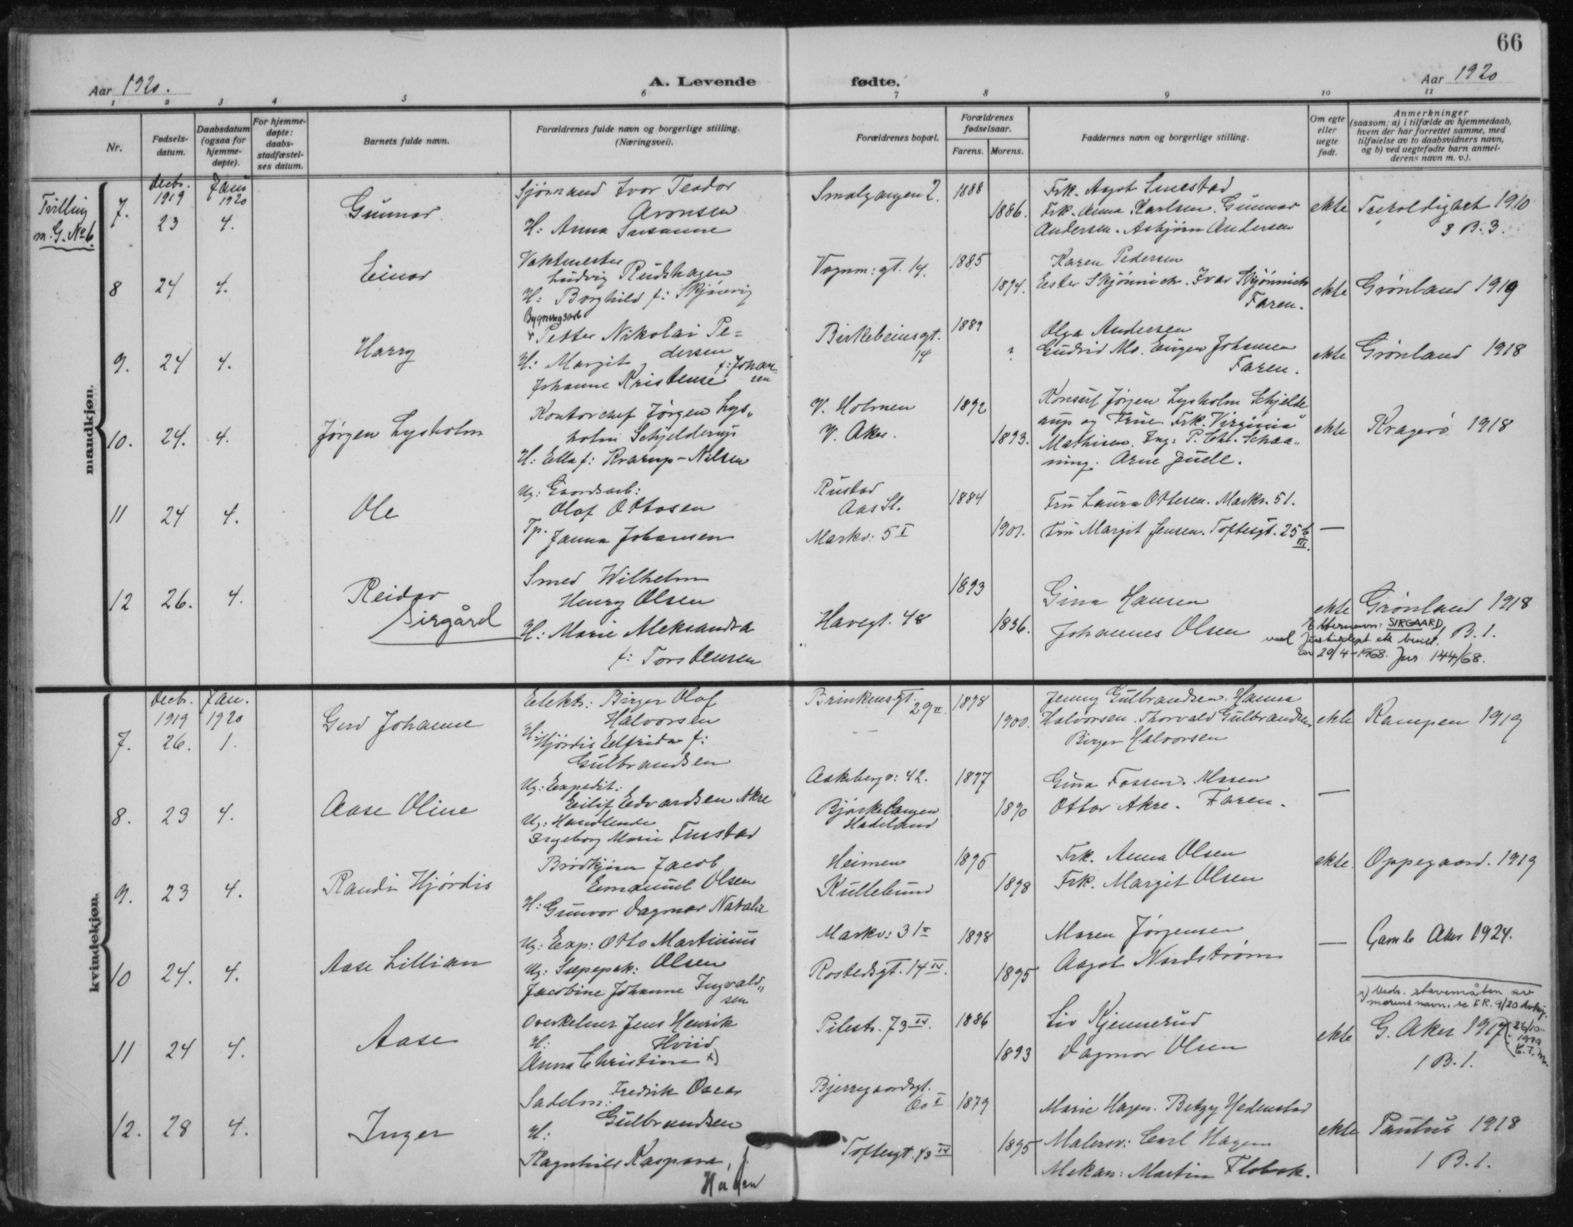 66
Aar 1920.
A. Levende
fødte.
Aar 1920
1 2 3 4 5 6 7 8 9 10 11
Nr.
Fødsels-
datum.
Daabsdatum
(ogsaa for
hjemme-
døpte).
For hjemme-
døpte:
daabs-
stadfæstel-
ses datum.
Barnets fulde navn.
Forældrenes fulde navn og borgerlige stilling.
(Næringsvei).
Forældrenes bopæl.
Forældrenes
fødselsaar.
Farens. Morens.
Faddernes navn og borgerlige stilling.
Om egte
eller
uegte
født.
Anmerkninger
(saasom: a) i tilfælde av hjemmedaab,
hvem der har forrettet samme, med
tilføielse av to daabsvidners navn,
og b) ved uegtefødte barn anmel-
derens navn m. v.).
mandkjøn.
Tvilling
m. G. No 6
Decb. Jan
1919 1920
7. 23 4.
Gunnar
Sjømand Ivar Teodor
Aronsen
H: Anna Susanne
Smalgangen 2.
1888
1886.
Frk. Aagot Smestad
Frk. Anna Karlsen. Gunnar
Andersen. Asbjørn Andersen
ekte
Trefoldighet 1910
3 B. 3.
8 24 4.
Einar
Vaktmester
Ludvig Rudshagen
H: Borghild f: Skjønvig
Vognm: gt. 14.
1885
1894.
Karen Pedersen
Ester Skjønnich. Ivar Skjønnich
Faren.
ekte
Grønland 1919
9. 24 4.
Harry
Bygningsarb
Petter Nikolai Pe=
dersen
H: Margit f: Johan-
sen
Johanne Kristense
Birkebeinergt.
14
1889
?
Olga Andersen
Gudrid Mo. Eugen Johansen
Faren.
ekte
Grønland 1918
10. 24. 4.
Jørgen Lysholm
Kontorchef Jørgen Lys-
holm Schjelderup
H: Ella f: Kvarup-Nilsen
V. Holmen
V. Aker.
1892
1893.
Konsul Jørgen Lysholm Schjelde
rup og Frue. Frk. Virginia
Mathisen. Ing: P. Chr. Schaa-
ning. Arne Juell.
ekte
Kragerø 1918
11 24 4.
Ole
Ug: Gaardsarb:
Olaf Ottosen
Tp. Janna Johansen
Rustad
Aas St.
Markv: 5 I
1884
1901.
Fru Laura Ottesen. Markv. 51.
Fru Margit Jensen. Toftesgt. 25 b
III.
—
12 26. 4.
Reidar
Sirgård
Smed Wilhelm
Henry Olsen
H: Marie Aleksandra
f: Torstensen
Havegt. 48
1893
1896.
Gina Hansen
Johannes Olsen
ekte
Grønland 1918
1 B. 1.
Etternavn: SIRGAARD,
ved Justisdept.
29/4-1968. Jnr. 144/68.
kvindekjøn.
Decb. Jan.
1919 1920
7. 26. 1.
Gerd Johanne
Elektr: Birger Olaf
Halvorsen
H: Hjørdis Elfrida f:
Gulbrandsen
Brinkensgt.
29 II.
1898
1900.
Jenny Gulbrandsen. Hanna
Halvorsen. Thorvald Gulbrandsen
Birger Halvorsen
ekte
Kampen 1919
8. 23 4.
Aase Oline
Ug: Expedit:
Eilif Edvardsen Akre
Ug: Handlende
Ingeborg Marie Finstad
Aakebergv: 42.
Bjørkelangen
Hadeland
1897
1890
Gina Fossen. Maren
Ottar Akre. Faren.
—
9. 23 4.
Randi Hjørdis
Brødkjører Jacob
Emanuel Olsen
H: Gunvor Dagmar Natalie
Heimen
Kullebund
1896
1898
Frk. Anna Olsen
Frk. Margit Olsen
ekte
Oppegaard. 1919
10 24. 4.
Aase Lillian
Ug: Exp: Otto Martinius
Olsen
Ug: Sæpepak:
Jacobine Johanne Ingvald-
sen
Markv: 31 II
Rostedsgt. 14 IV.
1898
1895
Maren Jørgensen
Aagot Nordstrøm
—
Gamle Aker 1924.
11 24 4.
Aase
Overkelner Jens Henrik
Hviid
H:
Anna Christine x)
Pilestr. 73 IV.
1886
1893
Liv Kjennerud
Dagmar Olsen
ekte
x) Vedr. stavemåten av
morens navn. se F.R. 9/20
G. Aker 1917
1 B. 1.
12. 28 4.
Inger
Sadelm: Fredrik Oscar
Gulbrandsen
H:
Ragnhild Kaspara, f.
Hagen
Bjerregaardsgt.
60 I
Toftesgt. 43 IV
1879
1895
Marie Hagen. Betzy Hedenstad
Malersv: Carl Hagen
Mekan: Martin Flobak.
ekte
Paulus 1918
1 B. 1.